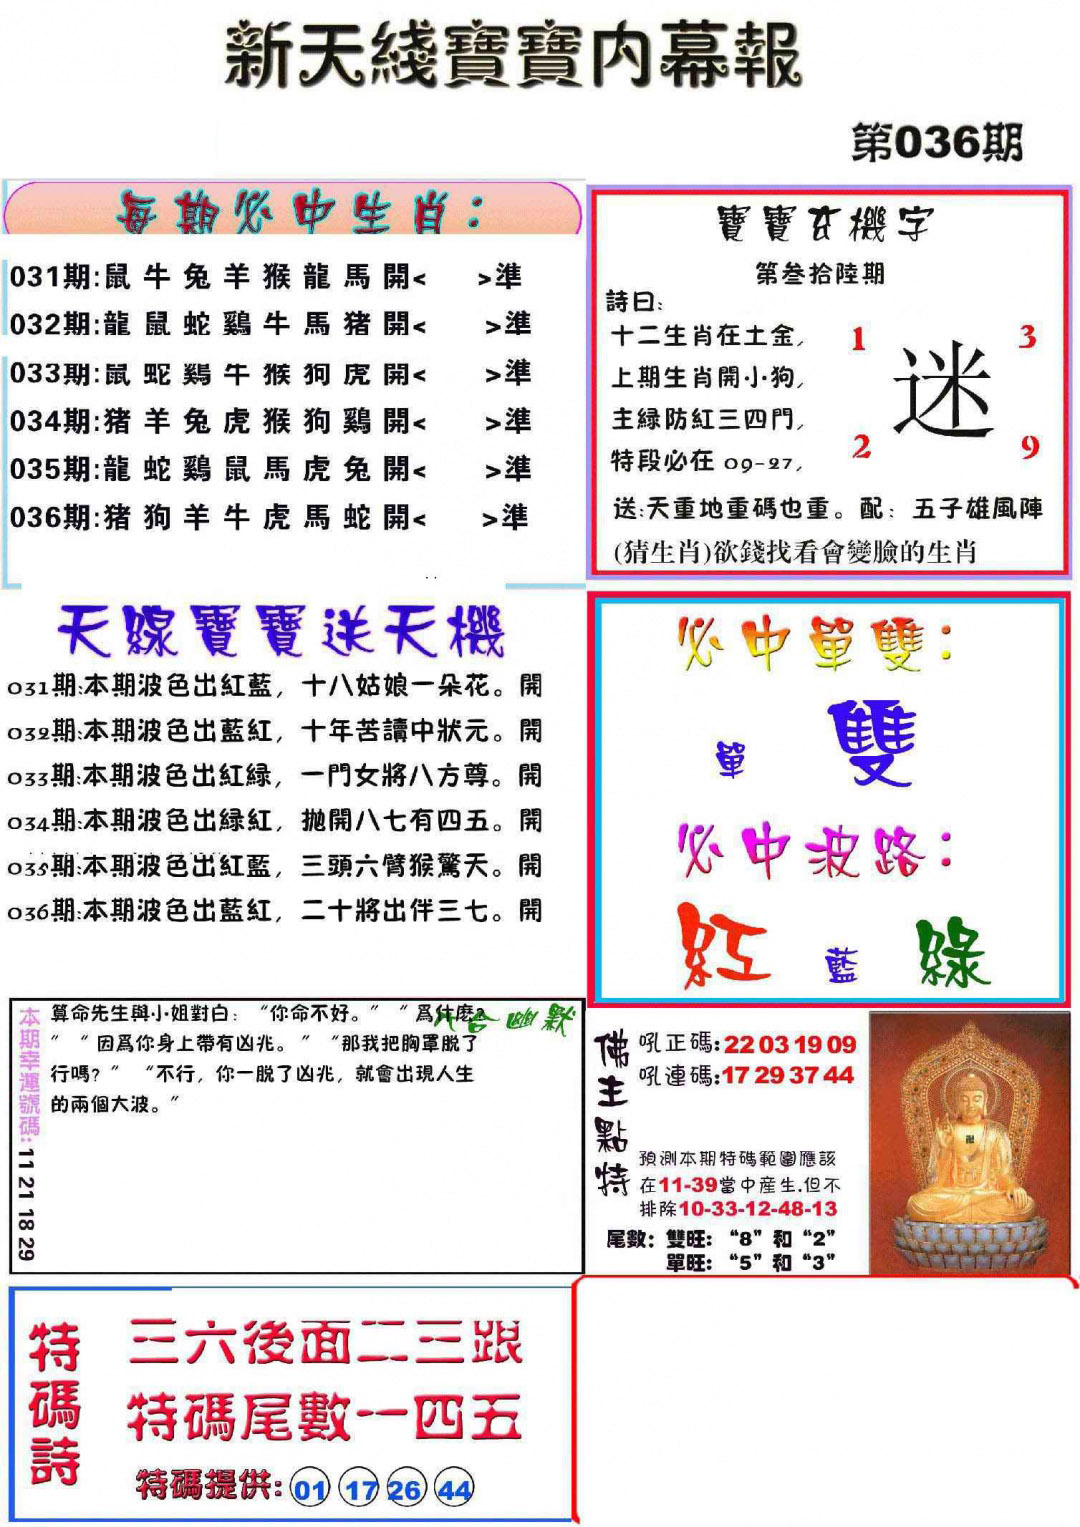 新天綫寶寶内幕報
第036期
每期必中生肖：
031期:鼠牛兔羊猴龍馬開< >準
032期:龍鼠蛇鷄牛馬猪開< >準
033期:鼠蛇鷄牛猴狗虎開< >準
034期:猪羊兔虎猴狗鷄開< >準
035期:龍蛇鷄鼠馬虎兔開< >準
036期:猪狗羊牛虎馬蛇開< >準
寶寶玄機字
第叁拾陸期
詩曰:
十二生肖在土金,
上期生肖開小狗,
主緑防紅三四門,
特段必在 09-27,
1 3
迷
2 9
送:天重地重碼也重。配：五子雄風陣
(猜生肖)欲錢找看會變臉的生肖
天線寶寶送天機
031期:本期波色出紅藍，十八姑娘一朵花。開
032期:本期波色出藍紅，十年苦讀中狀元。開
033期:本期波色出紅緑，一門女將八方尊。開
034期:本期波色出緑紅，抛開八七有四五。開
035期:本期波色出紅藍，三頭六臂猴驚天。開
036期:本期波色出藍紅，二十將出伴三七。開
必中單雙：
單 雙
必中波路：
紅 藍 緑
本期幸運號碼: 11 21 18 29
六合幽默
算命先生與小姐對白：“你命不好。”“爲什麽?
”“因爲你身上帶有凶兆。”“那我把胸罩脱了
行嗎？”“不行，你一脱了凶兆，就會出現人生
的兩個大波。”
佛主點特
吼正碼:22 03 19 09
吼連碼:17 29 37 44
預測本期特碼範圍應該
在11-39當中産生.但不
排除10-33-12-48-13
尾數：雙旺：“8”和“2”
單旺：“5”和“3”
特碼詩
三六後面二三跟
特碼尾數一四五
特碼提供: 01 17 26 44